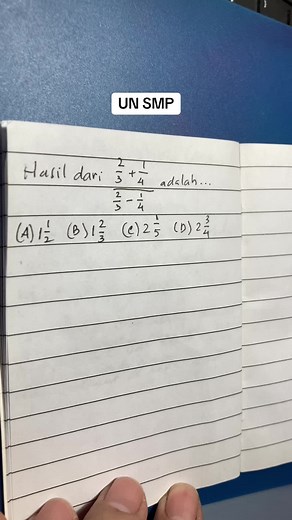 UN SMP
Hasil dari (2/3 + 1/4)/(2/3 - 1/4) adalah...
(A) 1 1/2 (B) 1 2/3 (C) 2 1/5 (D) 2 3/4